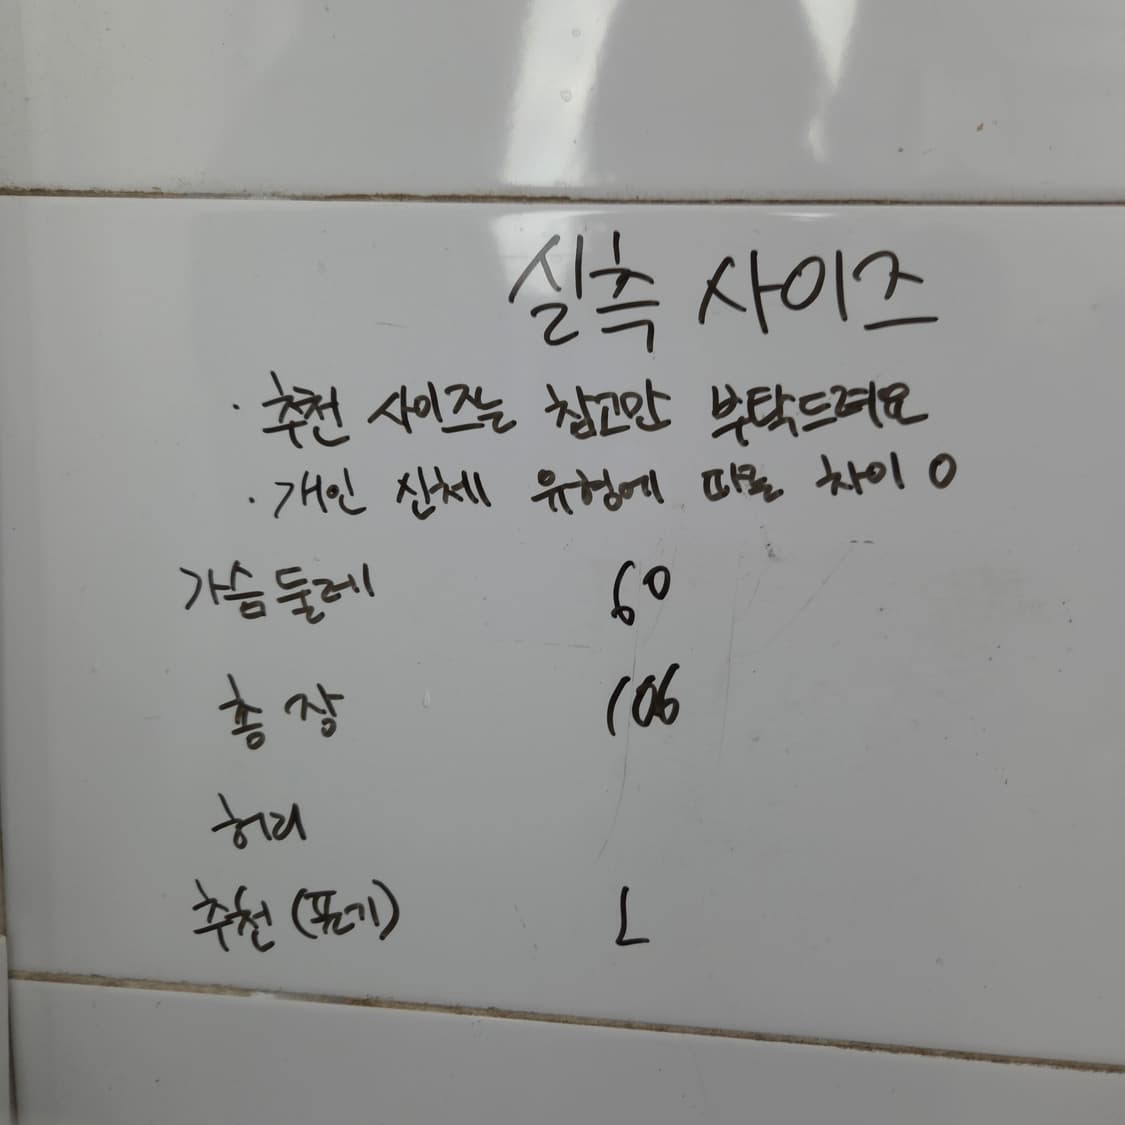 실측 사이즈
· 추천 사이즈는 참고만 부탁드려요
· 개인 신체 유형에 따를 차이 O
가슴둘레 60
총장 106
허리
추천(표기) L